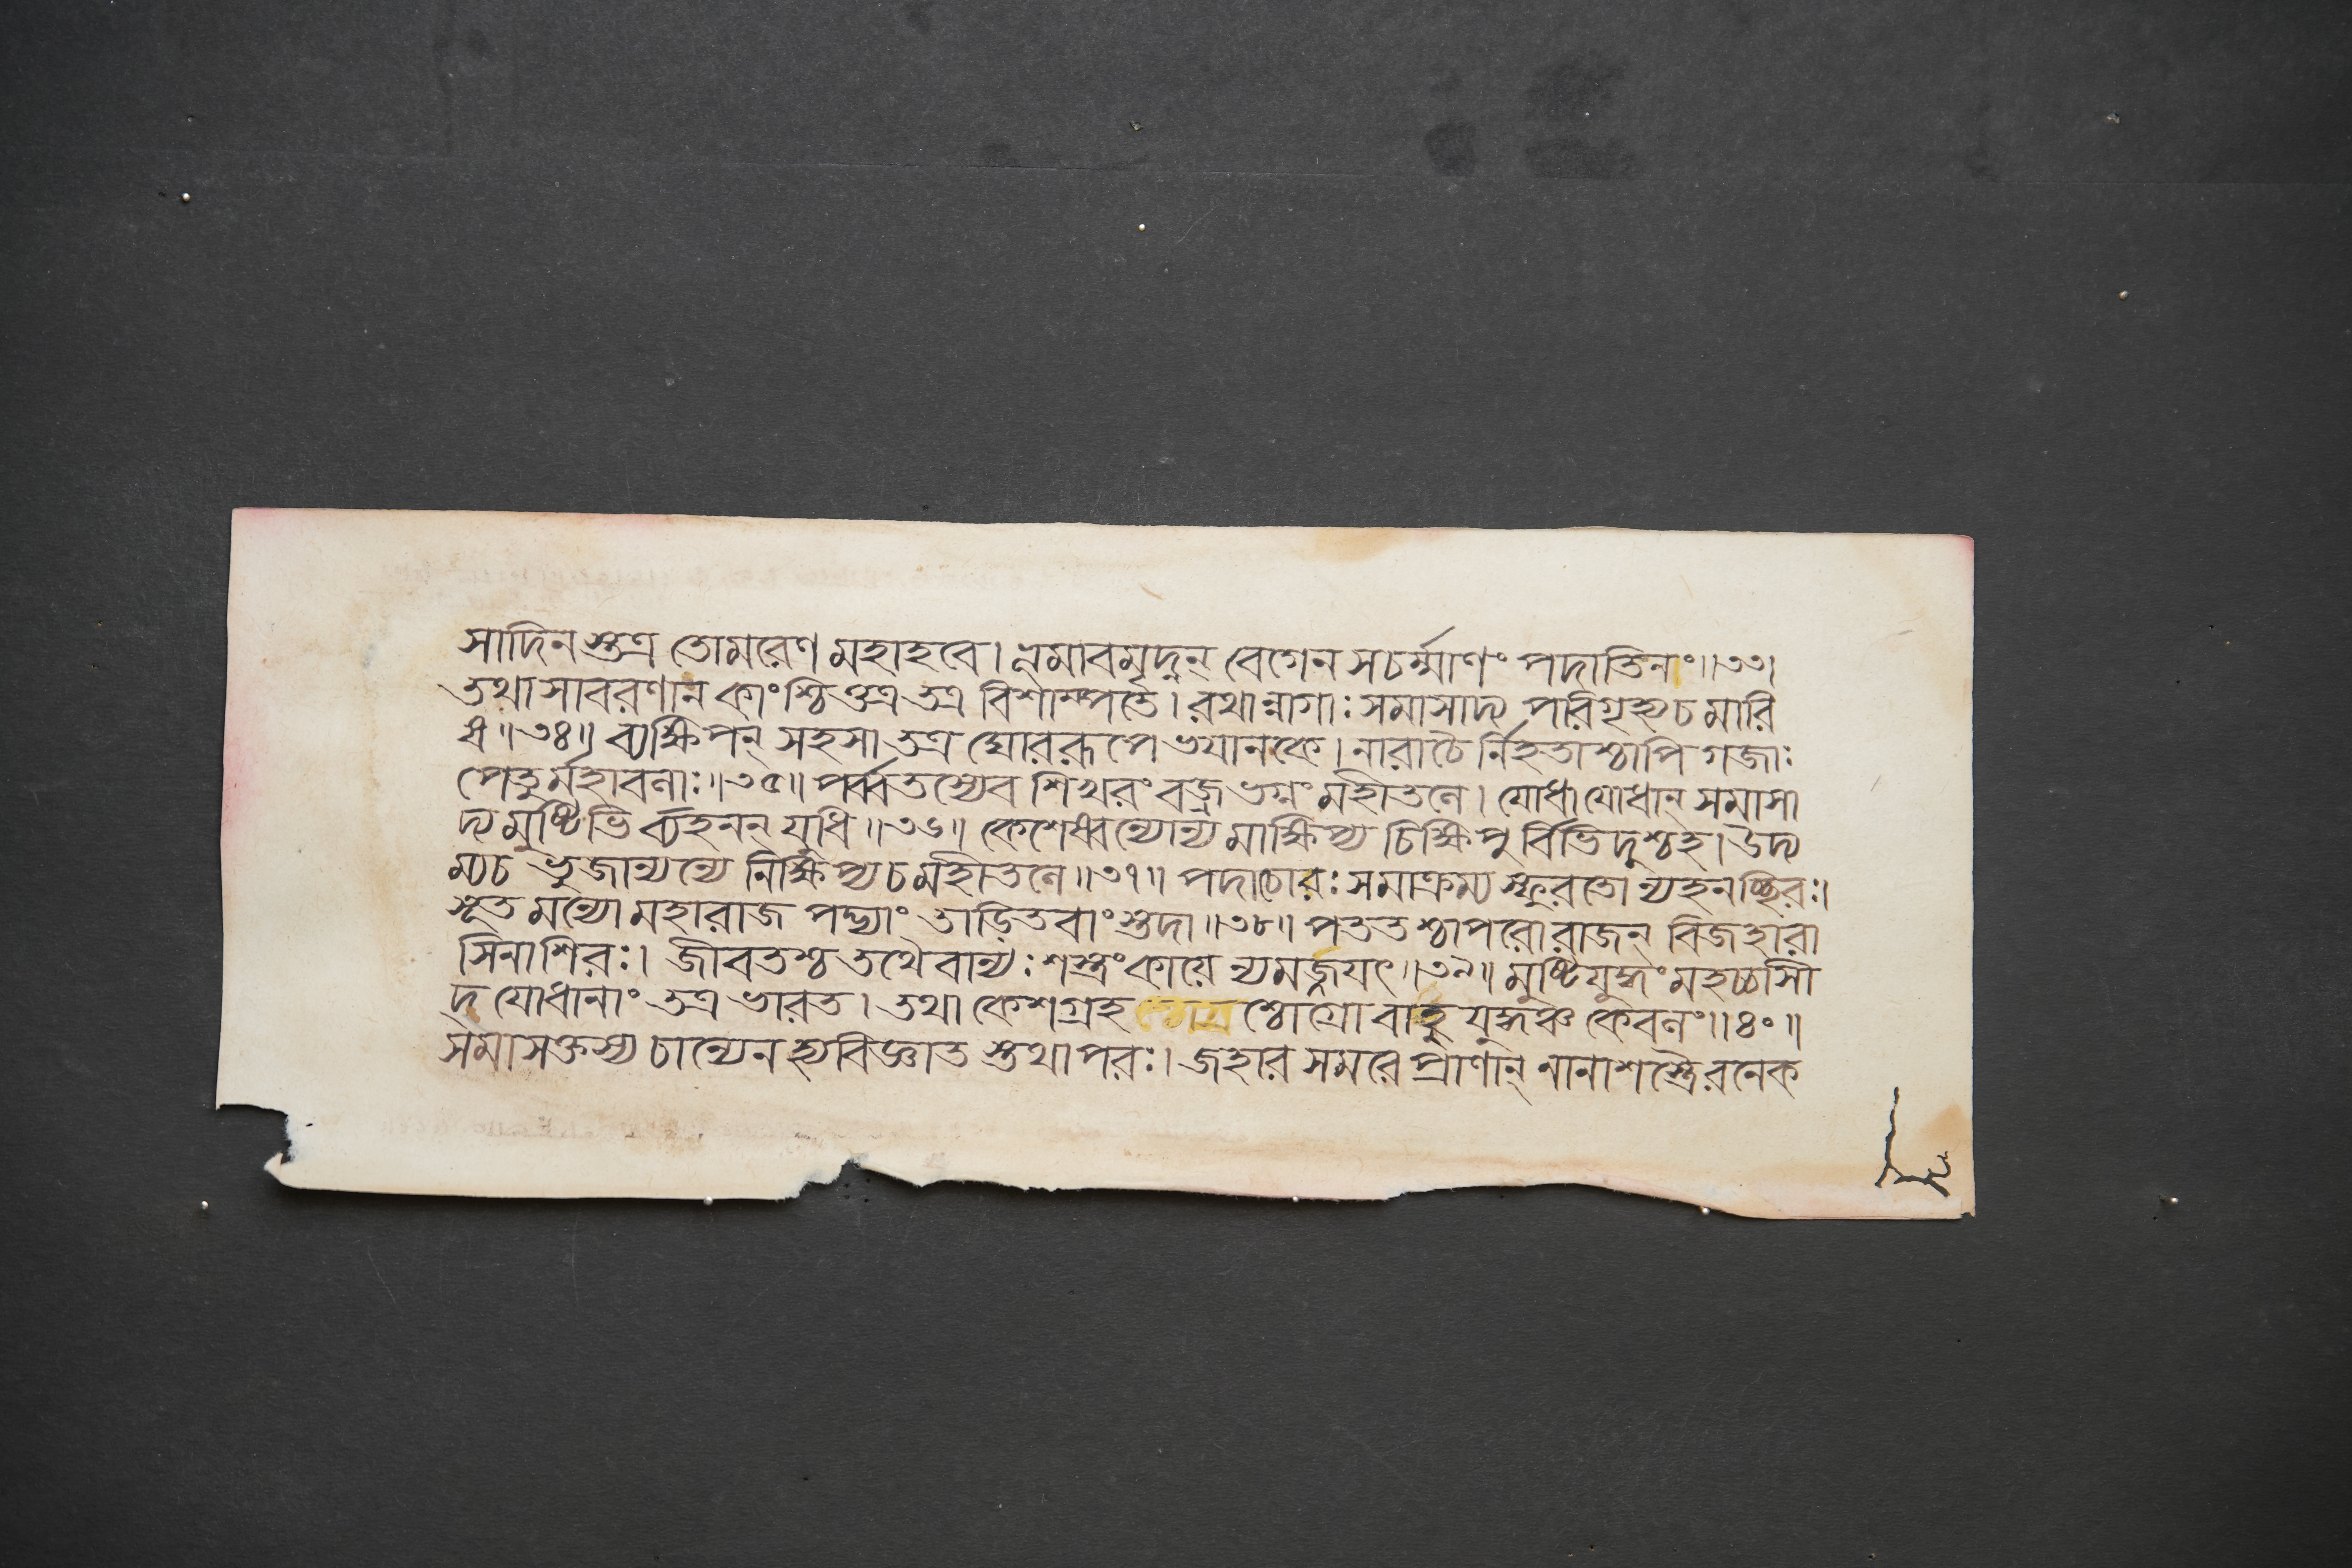 সাদিনস্তত্র তোমরেণ মহাহবে। নৃমাবমৃদ্নন্ বেগেন সচর্ম্মাণং পদাতিনং॥৩৩।
তথা সাবরণান কাংশ্চিত্তত্র তত্র বিশাম্পতে। রথান্নাগাঃ সমাসাদ্য পরিগৃহ্য চ মারি
ষ॥৩৪॥ ব্যক্ষিপন্ সহসা তত্র ঘোররূপে ভয়ানকে। নারাচৈর্নিহতাশ্চাপি গজাঃ
পেতুর্মহাবলাঃ॥৩৫॥ পর্ব্বতস্যেব শিখরং বজ্রভগ্নং মহীতলে। যোধা যোধান্ সমাসা
দ্য মুষ্টিভির্ব্যহনন্ যুধি॥৩৬॥ কেশেষ্বন্যোন্যমাক্ষিপ্য চিক্ষিপুর্বিভিদুশ্চহ। উদ্য
ম্য চ ভুজান্যন্যে নিক্ষিপ্য চ মহীতলে॥৩৭॥ পদাচোরঃ সমাক্রম্য স্ফুরতোন্যহনচ্ছিরঃ।
মৃতমন্যো মহারাজ পদ্ভ্যাং তাড়িতবাংস্তদা॥৩৮॥ পততশ্চাপরো রাজন্ বিজহারা
সিনা শিরঃ। জীবতশ্চ তথৈবান্যঃ শস্ত্রং কায়ে ন্যমজ্জয়ৎ॥৩৯॥ মুষ্টিযুদ্ধং মহচ্চাসী
দ্ যোধানাং তত্র ভারত। তথা কেশগ্রহ শ্চোগ্রো বাহুযুদ্ধঞ্চ কেবলং॥৪০॥
সমাসক্তস্য চান্যেন হ্যবিজ্ঞাত স্তথাপরঃ। জহার সমরে প্রাণান্ নানাশস্ত্রৈরনেক